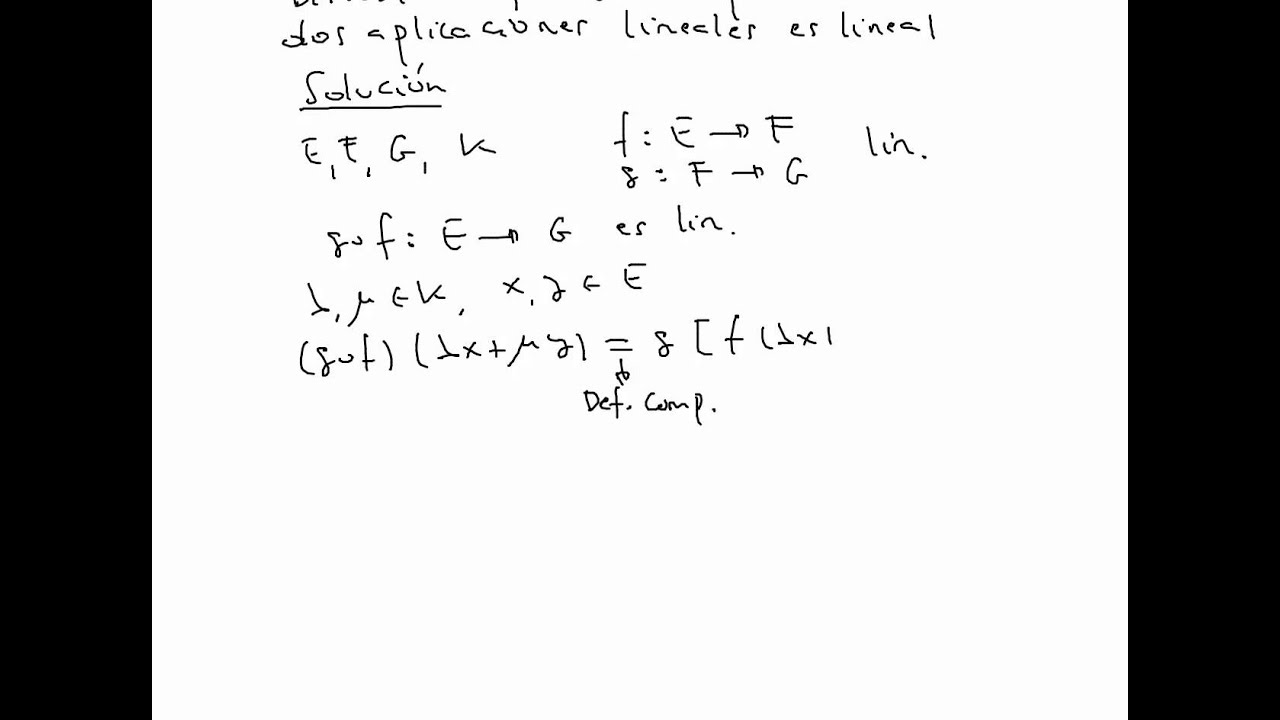 dos aplicaciones lineales es lineal
Solución
E, F, G, K f: E → F lin.
g: F → G
g∘f: E → G es lin.
λ, μ ∈ K, x, y ∈ E
(g∘f) (λx + μy) = g [f (λx
Def. Comp.